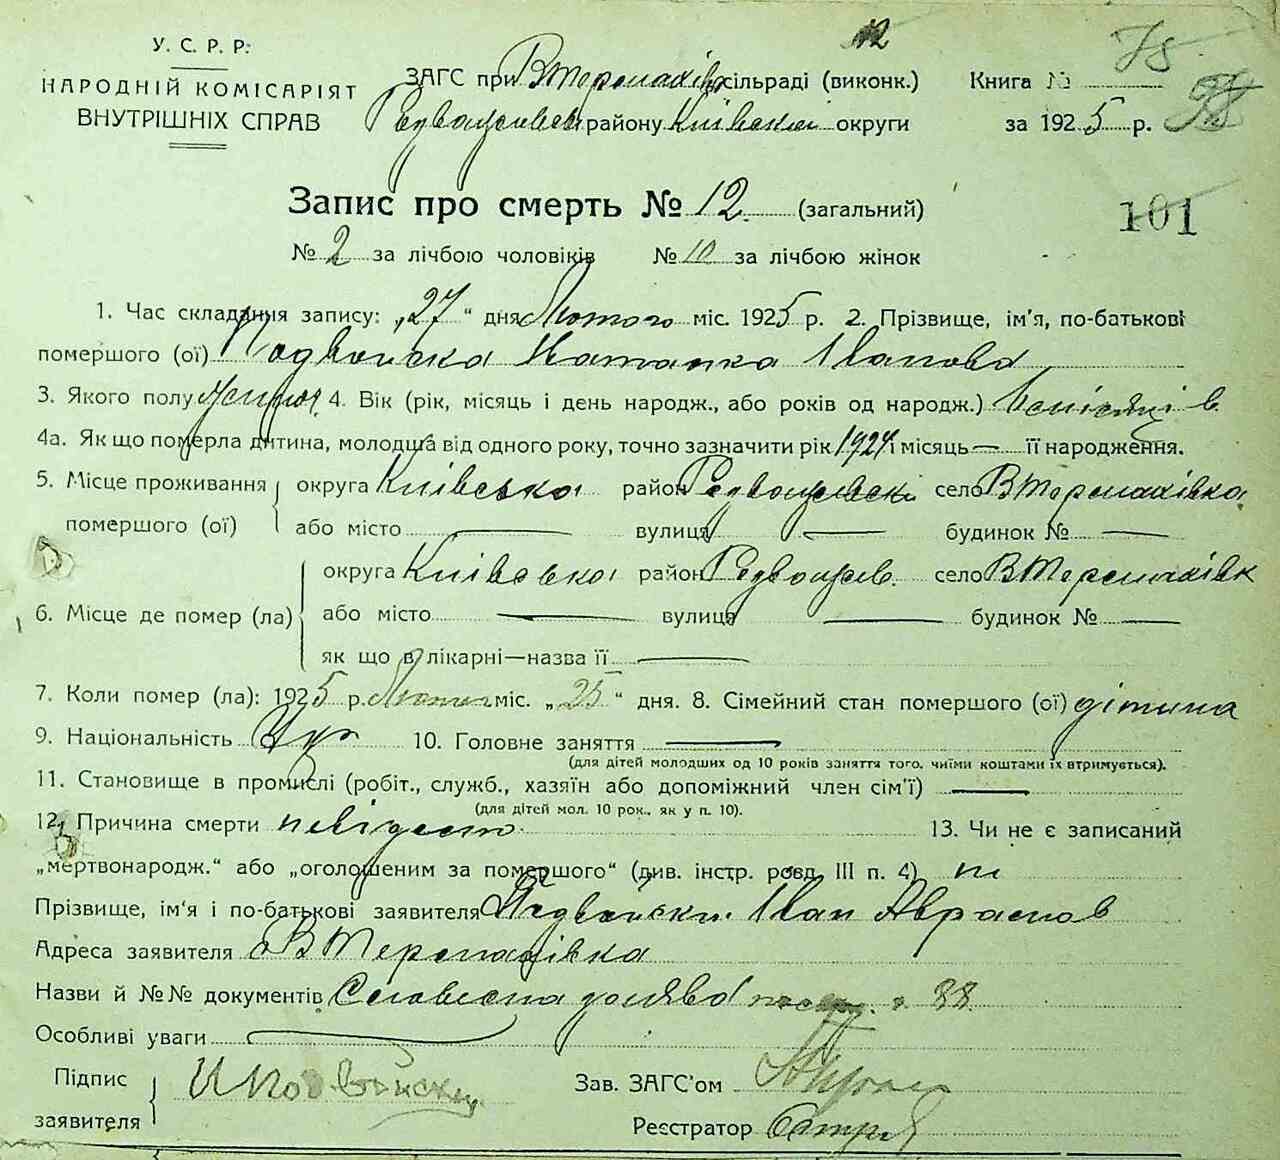 У. С. Р. Р.
НАРОДНІЙ КОМІСАРІЯТ
ВНУТРІШНІХ СПРАВ
12
ЗАГС при ВТермахів сільраді (виконк.) Книга № 78
району Київскої округи за 1925 р. 98
Запис про смерть № 12 (загальний)
101
№ 2 за лічбою чоловіків № 10 за лічбою жінок
1. Час складання запису: „27“ дня Лютого міс. 1925 р. 2. Прізвище, ім'я, по-батькові
помершого (ої) Подвойска Наталка Іванова
3. Якого полу 4. Вік (рік, місяць і день народж., або років од народж.)
4а. Як що померла дитина, молодша від одного року, точно зазначити рік 1924 і місяць — її народження.
5. Місце проживання помершого (ої) округа Київська район село ВТермахівка
або місто — вулиця — будинок № —
6. Місце де помер (ла) округа Київська район село ВТермахівк
або місто — вулиця — будинок № —
як що в лікарні—назва її —
7. Коли помер (ла): 1925 р. міс. „25“ дня. 8. Сімейний стан помершого (ої) дітина
9. Національність Укр 10. Головне заняття —
(для дітей молодших од 10 років заняття того, чиїми коштами їх втримується).
11. Становище в промислі (робіт., служб., хазяїн або допоміжний член сім'ї) —
(для дітей мол. 10 рок., як у п. 10).
12. Причина смерти невідомо 13. Чи не є записаний
„мертвонародж.“ або „оголошеним за помершого“ (див. інстр. розд. III п. 4)
Прізвище, ім'я і по-батькові заявителя Подвойски Іван Аврамов
Адреса заявителя с ВТермахівка
Назви й №№ документів Словесна заява 88
Особливі уваги —
Підпис заявителя И Подвойский Зав. ЗАГС'ом
Реєстратор